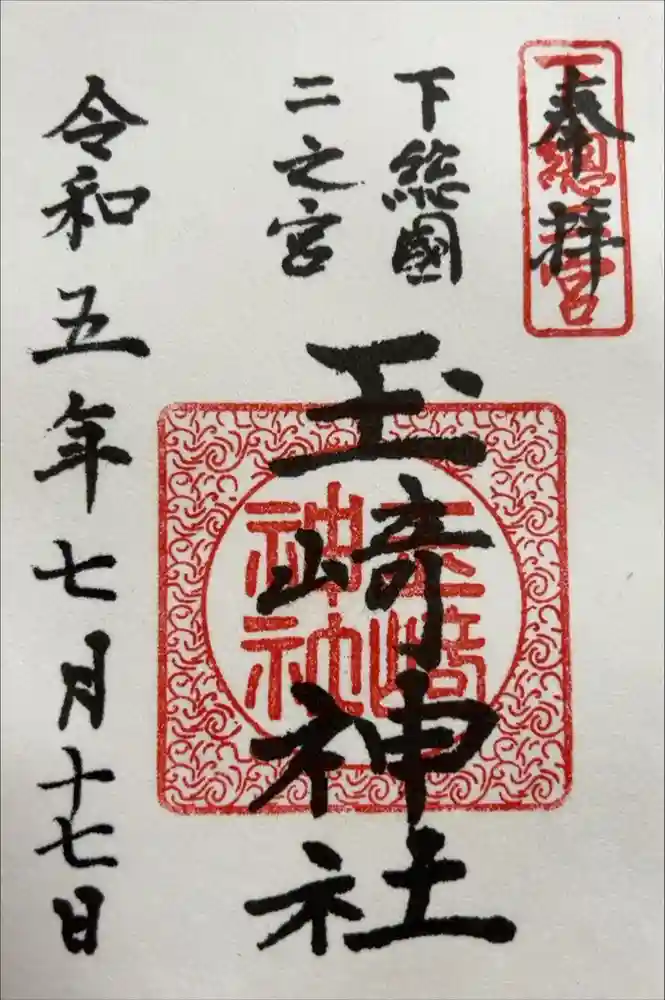 奉拝
下總二宮
下総國
二之宮
玉﨑神社
玉﨑神社
令和五年七月十七日